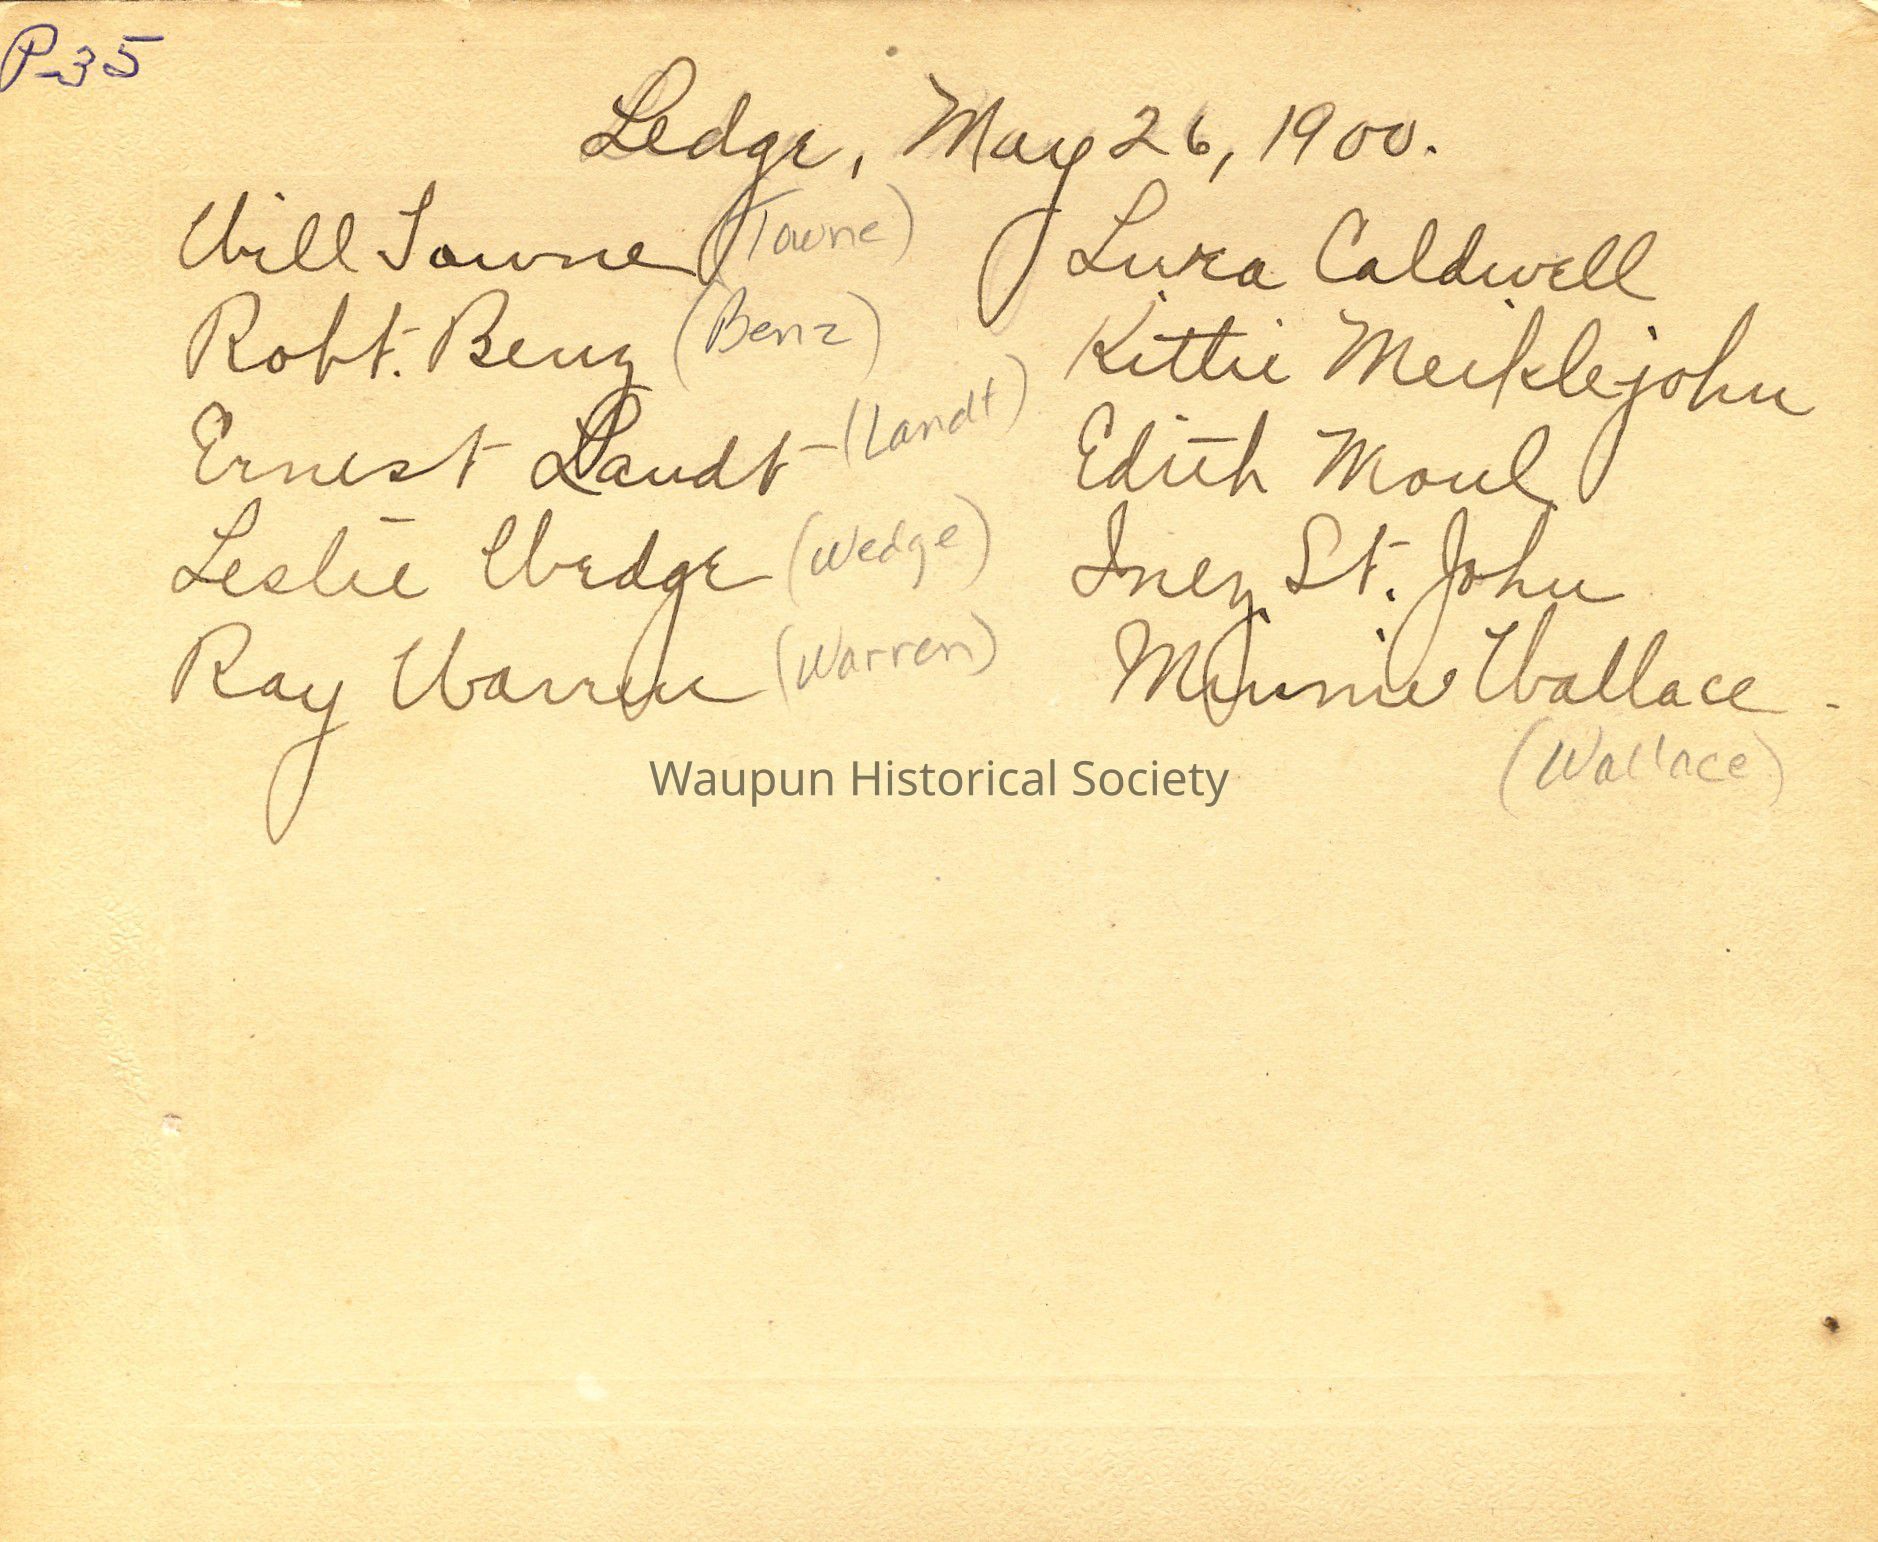 P-35
Ledge, May 26, 1900.
Will Towne (Towne) Lura Caldwell
Robt. Benz (Benz) Kittie Meiklejohn
Ernest Landt (Landt) Edith Moul
Leslie Wedge (Wedge) Inez St. John
Ray Warren (Warren) Minnie Wallace.
(Wallace)
Waupun Historical Society